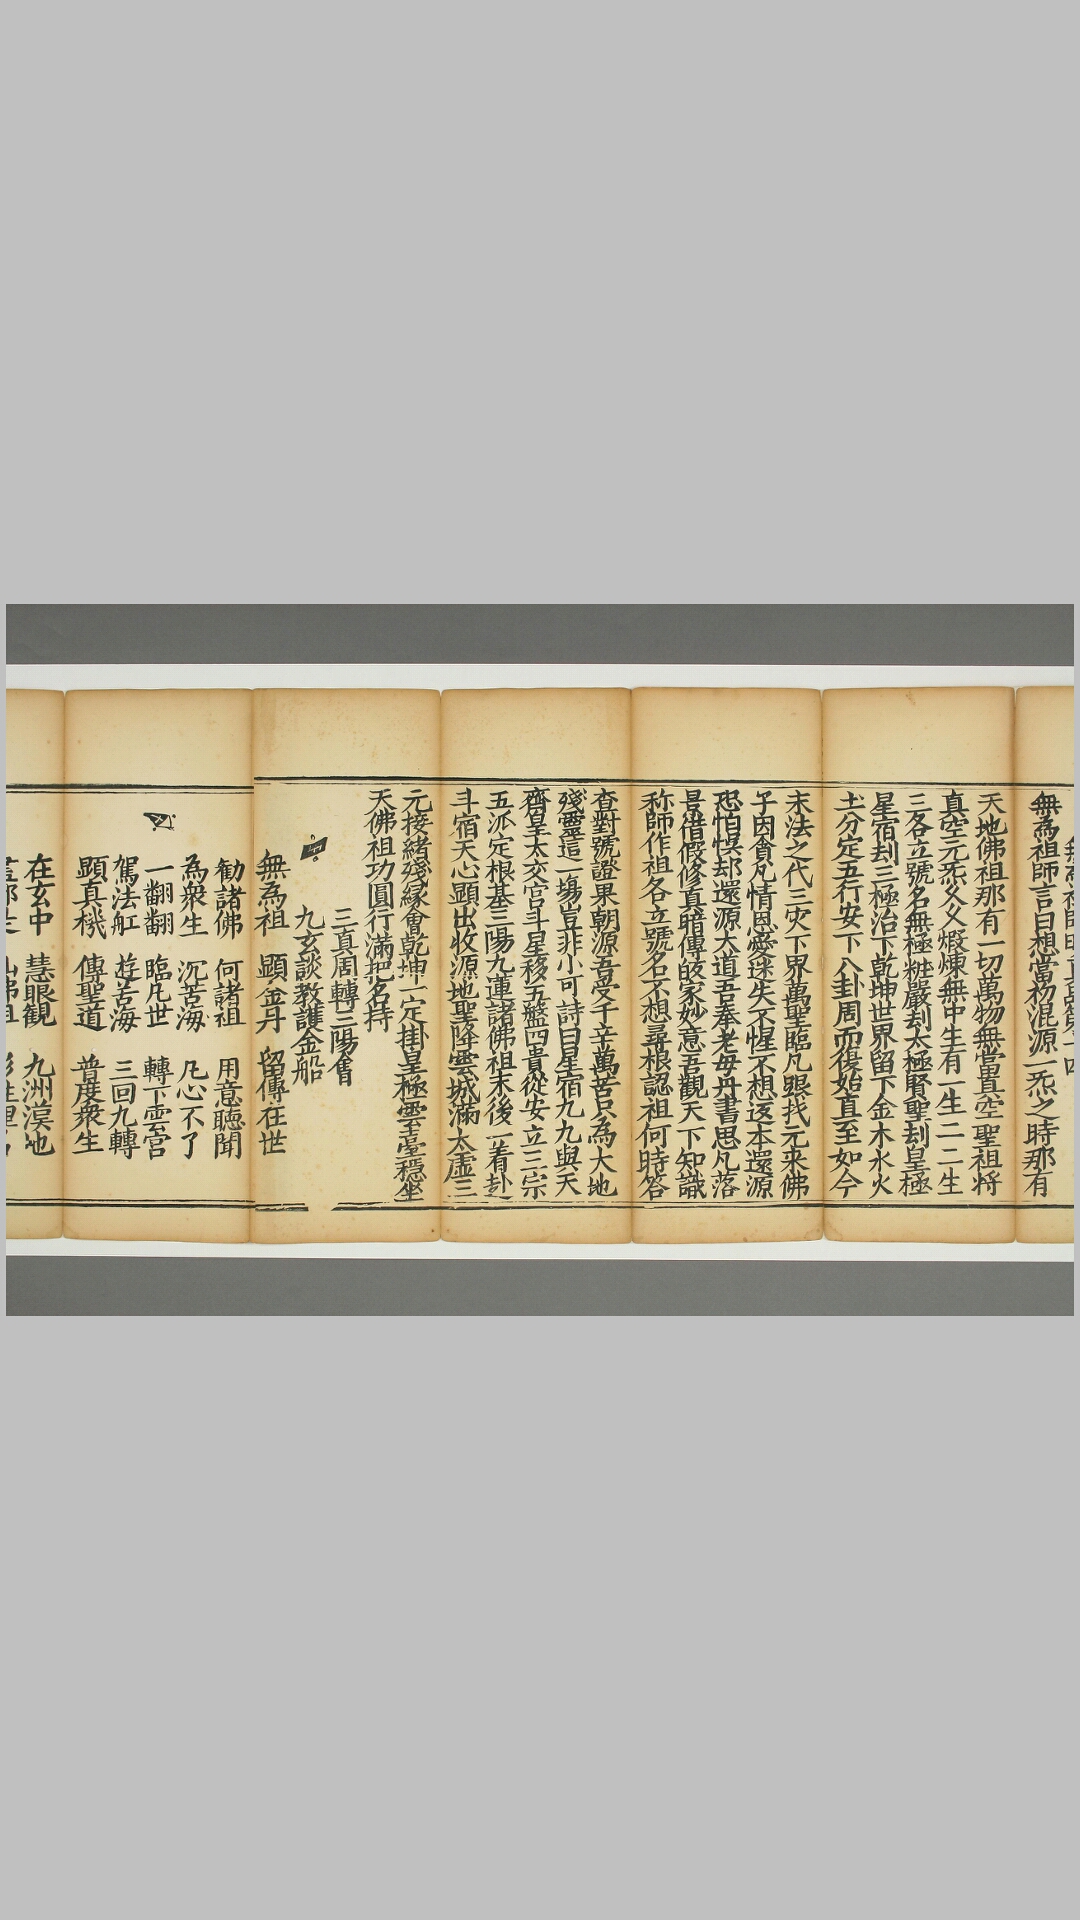 無為祖師言曰想當初混源一炁之時那有
天地佛祖那有一切萬物無當真空聖祖將
真空元炁父父煅煉無中生有一生二二生
三各立號名無極粧嚴刦太極賢聖刦皇極
星宿刦三極治下乾坤世界留下金木水火
土分定五行安下八卦周而復始直至如今
末法之代三灾下界萬聖臨凡照找元来佛
子因貪凡情恩愛迷失不惺不想返本還源
恐怕悞却還源大道吾奉老母丹書思凡落
景借假修真暗傳的家妙意吾觀天下知識
称師作祖各立號名不想尋根認祖何時答
查對號證果朝源吾受千辛萬苦只為大地
殘靈這一場豈非小可詩曰星宿九九與天
齊皇太交宮斗星移五盤四貴從安立三宗
五派定根基三陽九蓮諸佛祖末後一着卦
斗宿天心顕出收源地聖降雲城滿太虛三
元接緒殘緣會乾坤一定掛皇極雲臺穩坐
天佛祖功圓行滿把名持
三真周轉三陽舊
九玄談教護金船
無為祖 顕金丹 留傳在世
勸諸佛 何諸祖 用意聽聞
為衆生 沉苦海 凡心不了
一翻翻 臨凡世 轉下雲宮
駕法舡 遊苦海 三回九轉
顕真機 傳聖道 普度衆生
在玄中 慧眼観 九洲漠地